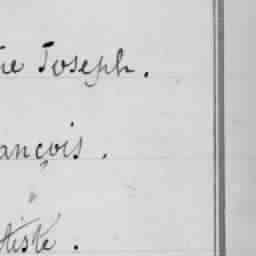 re Joseph.
ançois.
tiste.